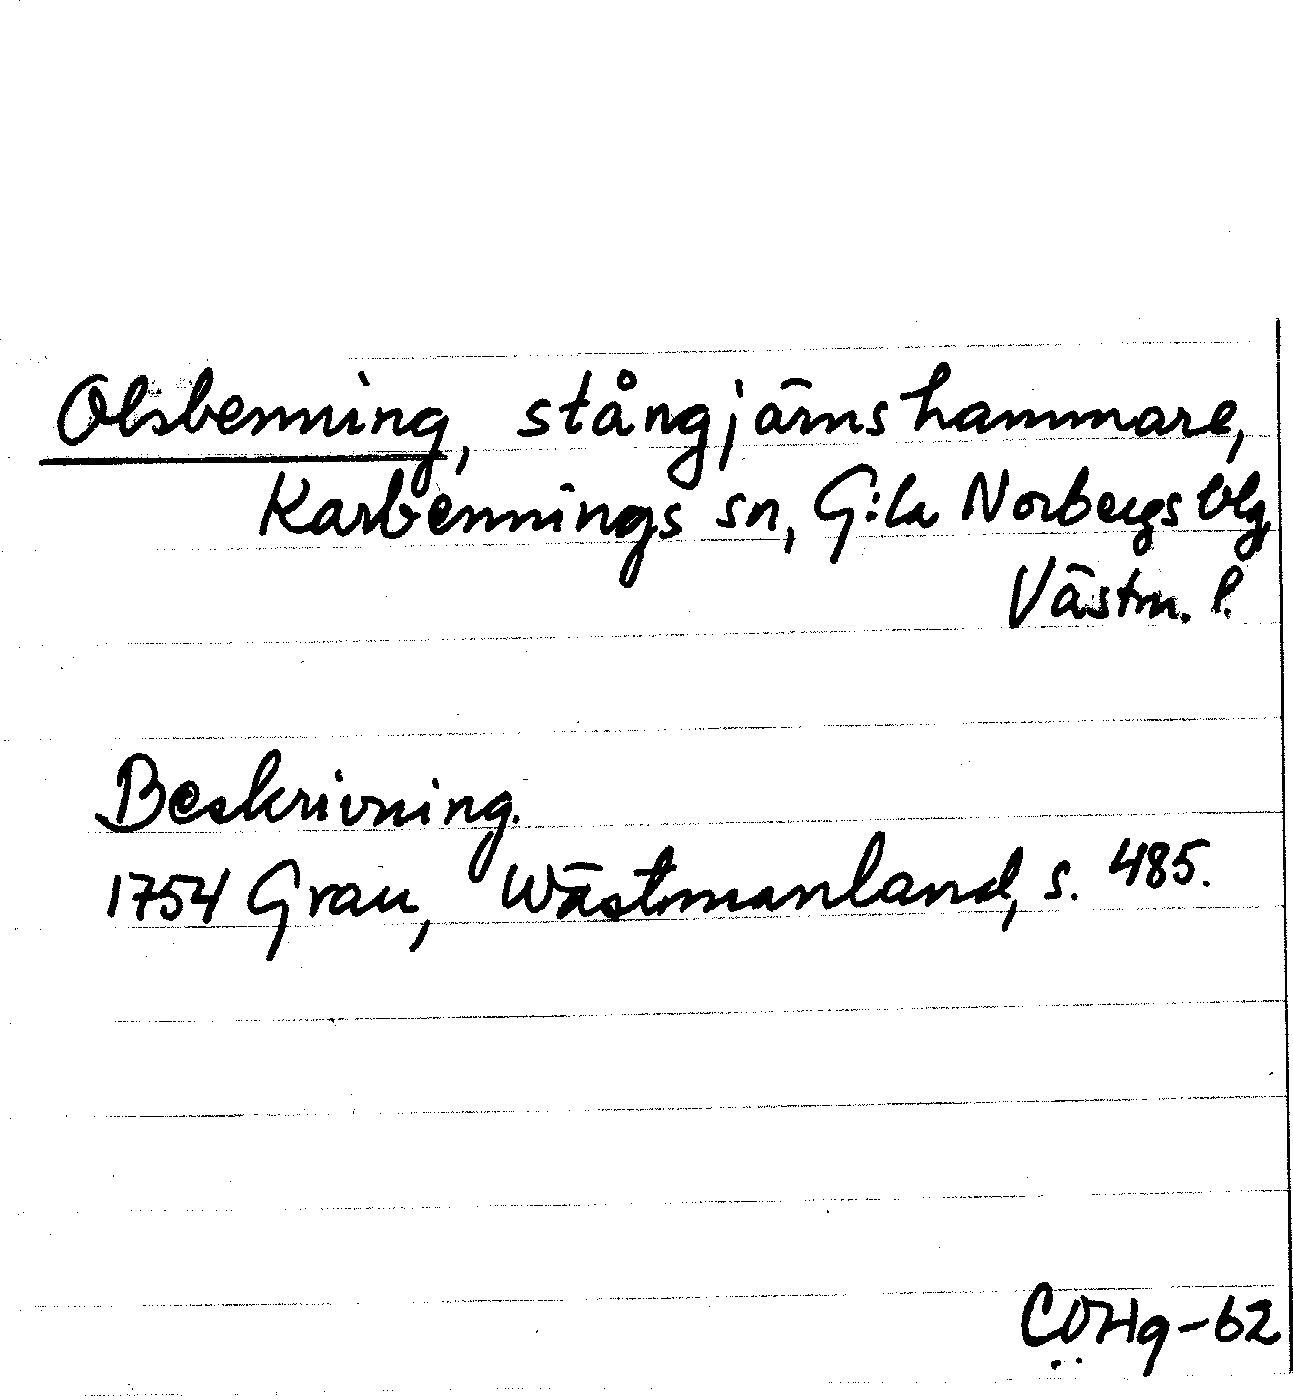 Olsbenning, stångjärnshammare,
Karbennings sn, G:la Norbergs blg
Västm. l.
Beskrivning.
1754 Grau, Wästmanland, s. 485.
COHg-62